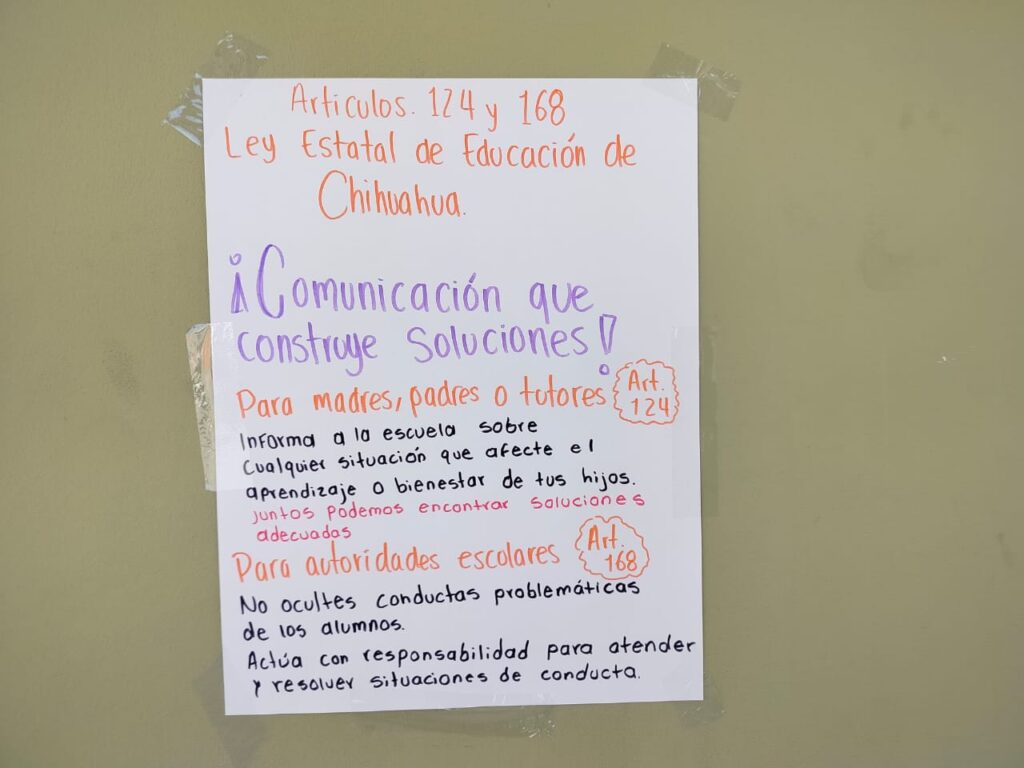 Articulos. 124 y 168
Ley Estatal de Educación de
Chihuahua.
¡Comunicación que
construye soluciones!
Para madres, padres o tutores Art. 124
Informa a la escuela sobre
cualquier situación que afecte el
aprendizaje o bienestar de tus hijos.
Juntos podemos encontrar soluciones
adecuadas
Para autoridades escolares Art. 168
No ocultes conductas problemáticas
de los alumnos.
Actúa con responsabilidad para atender
y resolver situaciones de conducta.